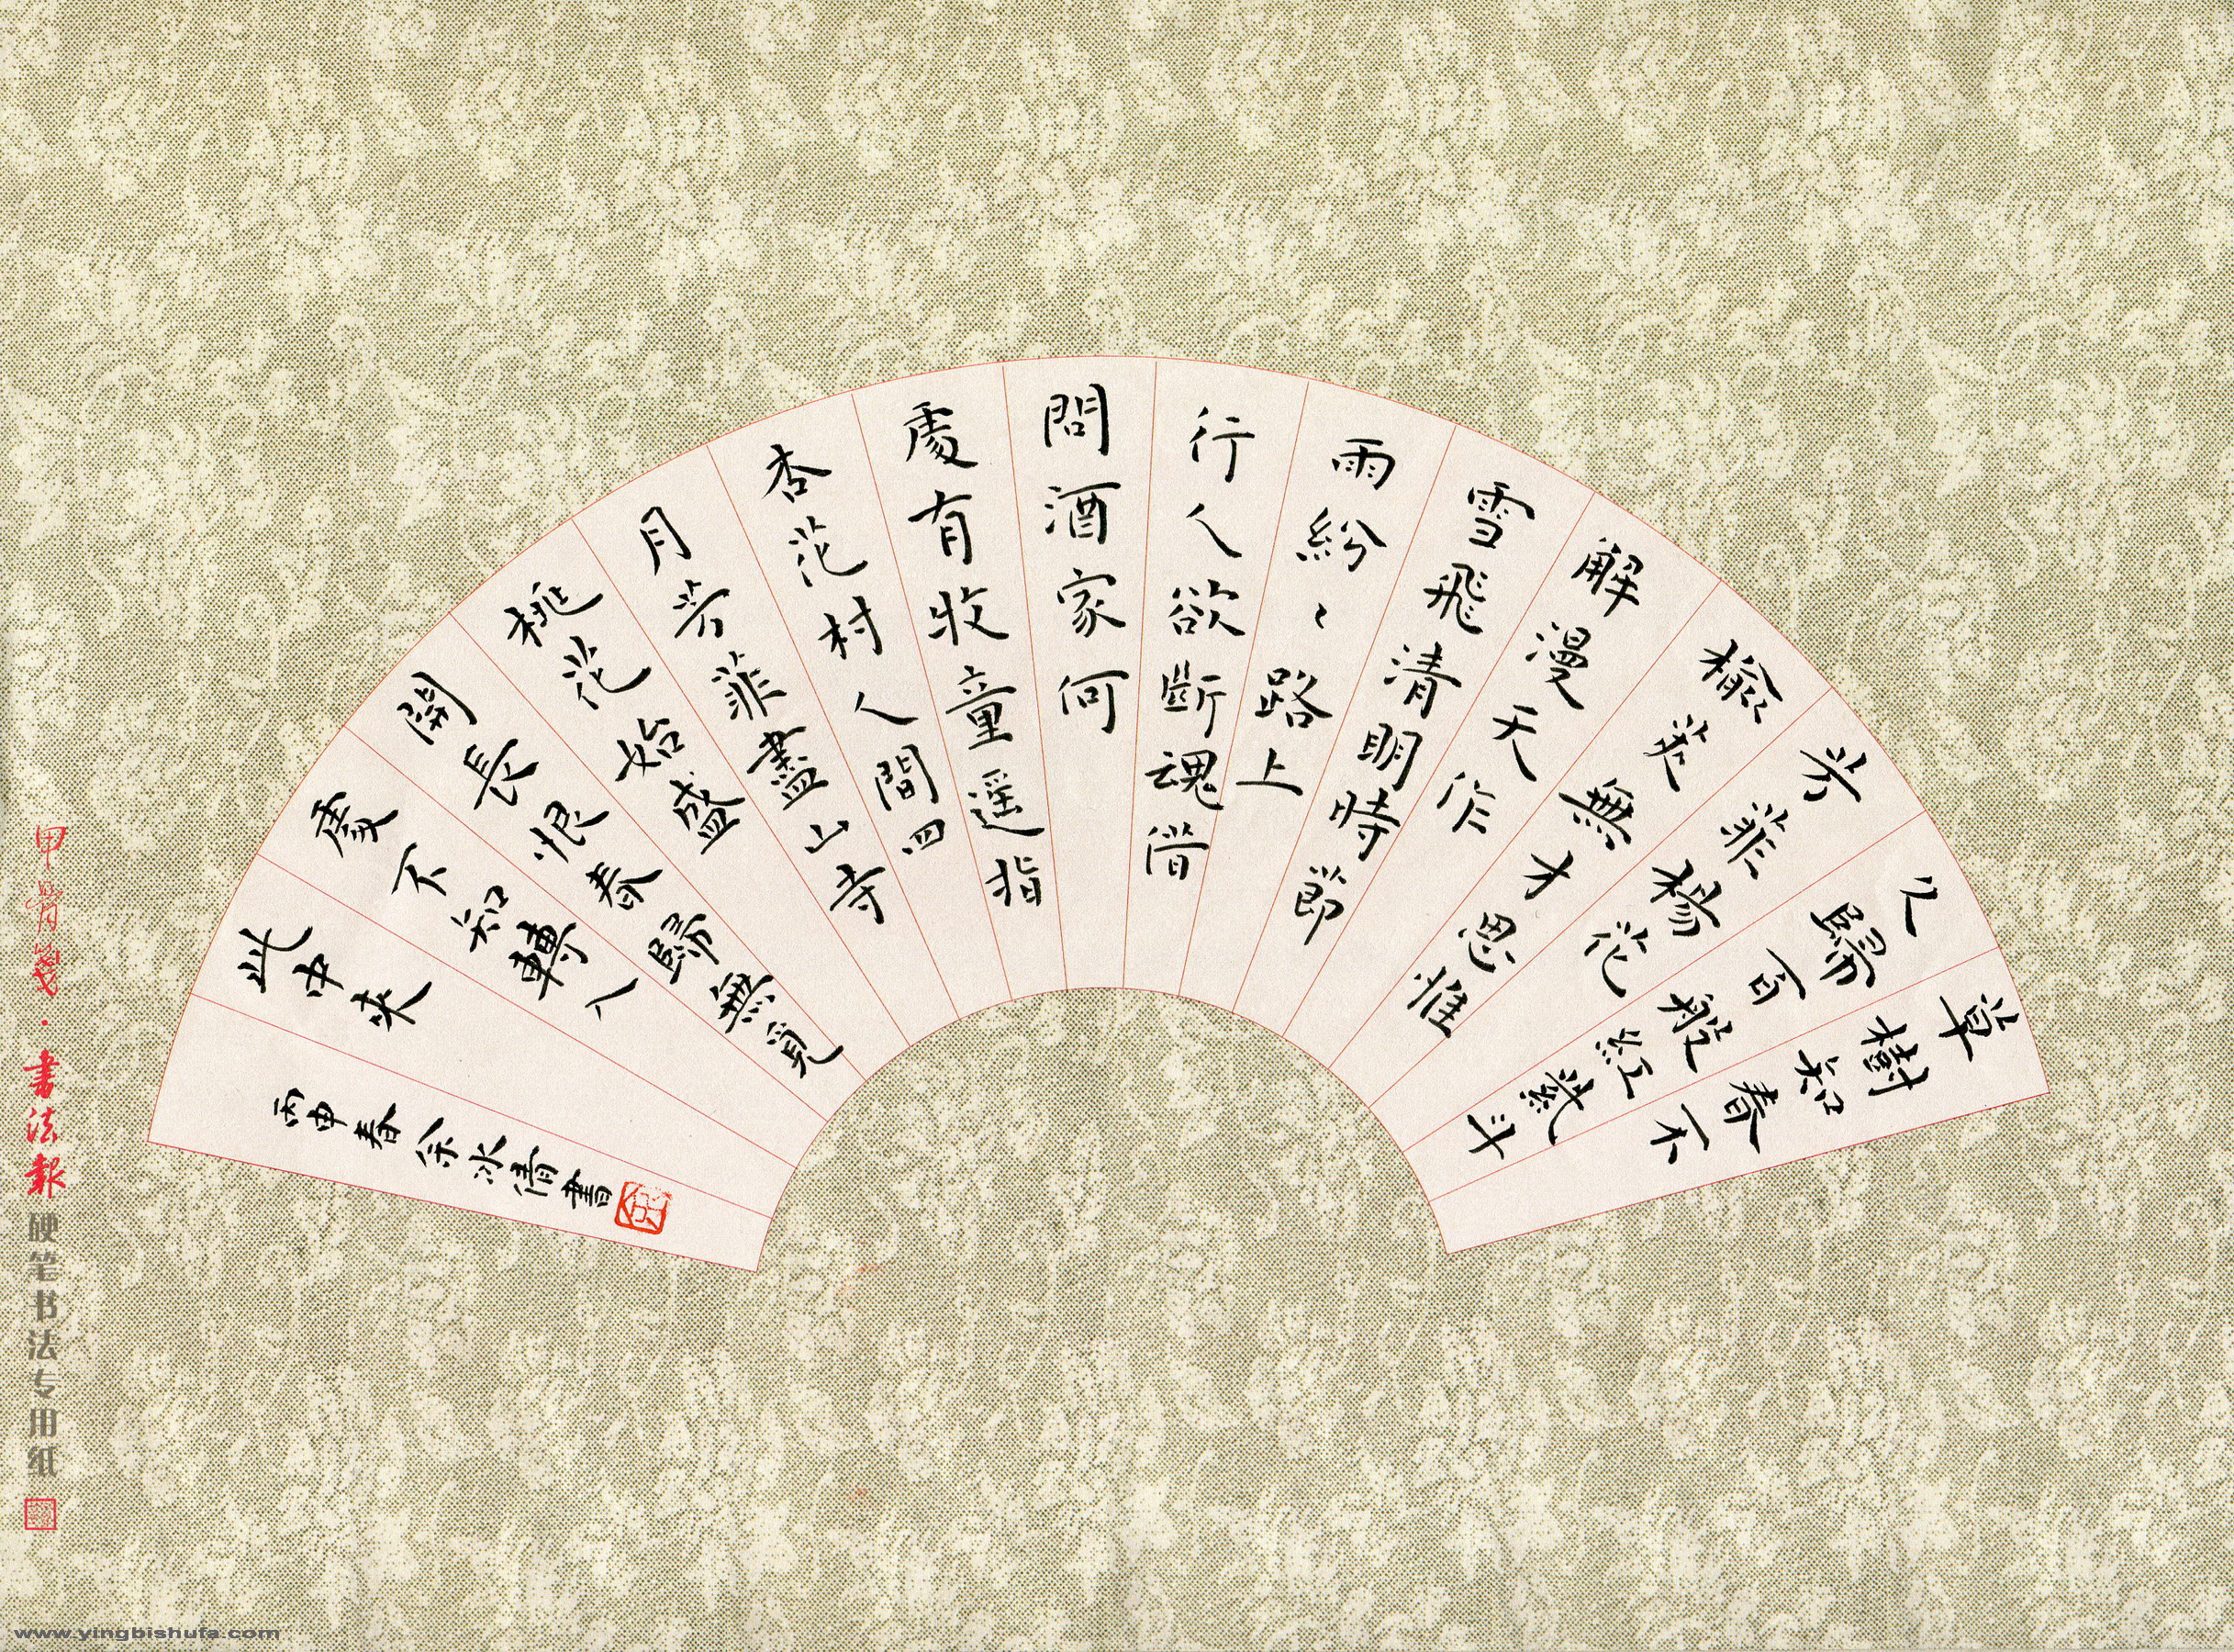 草樹知春不
久歸百般紅紫斗
芳菲楊花
榆莢無才思惟
解漫天作
雪飛清明時節
雨紛〻路上
行人欲斷魂借
問酒家何
處有牧童遥指
杏花村人間四
月芳菲盡山寺
桃花始盛
開長恨春歸無覓
處不知轉入
此中來
丙申春余冰清書
甲骨箋·書法報硬笔书法专用纸
www.yingbishufa.com